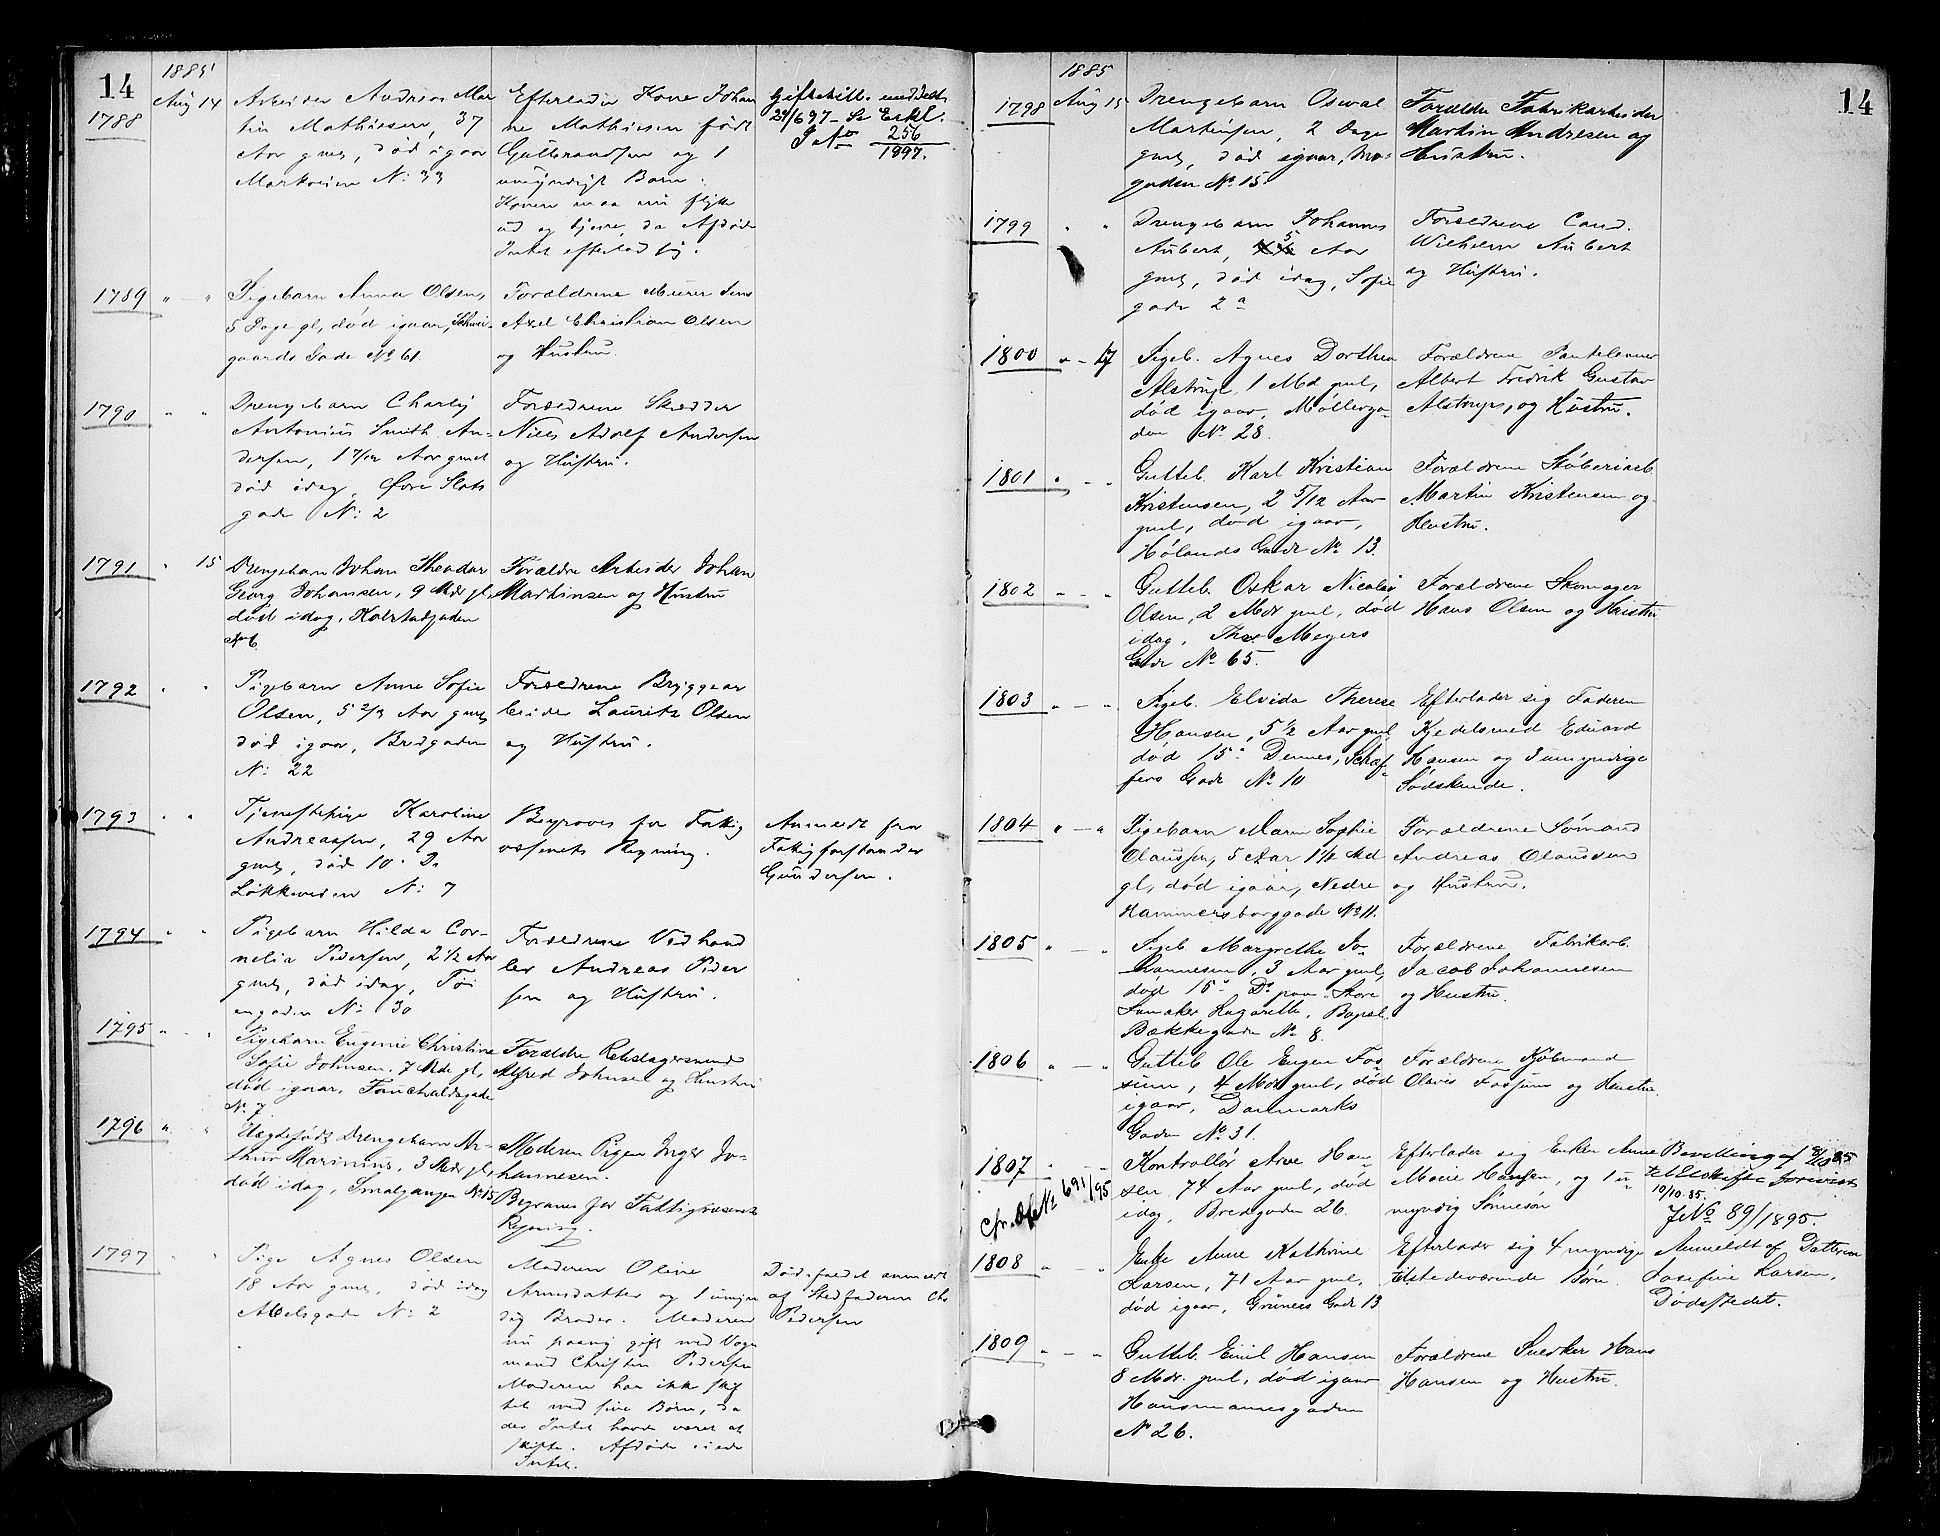 14
1885
1788
Aug 14
Arbeider Andreas Mar
tin Mathiesen, 37
Aar gml, død igaar
Markveien N: 33
Efterlader Kone Johan
ne Mathiesen født
Gulbrandsen og 1
umyndigt Barn.
Konen maa nu flytte
ud og tjene, da Afdøde
Intet efterlod sig.
Giftetill. meddelt
J. No 256
1897.
1789 " - "
Pigebarn Anna Olsen,
5 Dage gl, død igaar, Schwei-
gaards Gade No 61.
Forældrene Murer Jens
Axel Christian Olsen
og Hustru.
1790 " "
Drengebarn Charly
Antonius Smith An-
dersen, 1 7/12 Aar gmel
død idag, Øvre Slots
gade N: 2
Forældrene Skrædder
Niels Adolf Andersen
og Hustru.
1791 " 15
Drengebarn Johan Theodor
Georg Johansen, 9 Mdr gl,
død idag, Kolstadgaden
No 6
Forældre Arbeider Johan
Martinsen og Hustru
1792 " "
Pigebarn Anne Sofie
Olsen, 5 2/3 Aar gmel
død igaar, Bredgaden
N: 22
Forældrene Bryggear
beider Lauritz Olsen
og Hustru.
1793 " "
Tjenestepige Karoline
Andreassen, 29 Aar
gmel, død 10. Ds
Løkkeveien N: 7
Begraves for Fattig
væsenets Regning.
Anmeldt fra
Fattigforstander
Gundersen.
1794 " "
Pigebarn Hilda Cor-
nelia Pedersen, 2 1/2 Aar
gmel, død idag, Tøi
engaden N: 30
Forældrene Vedhand
ler Andreas Peder
sen og Hustru.
1795 " "
Pigebarn Eugenie Christine
Sofie Johnsen, 7 Mdr gl,
død igaar, Fauchaldsgade
No 7.
Forældre Rebslagersvend
Alfred Johnsen og Hustru
1796 " "
Uægtefødt Drengebarn Ar-
thur Marinius, 3 Mdr gl,
død idag, Smalgangen No 15
Moderen Pigen Inger Jo-
hannesen.
Begraves for Fattigvæsenets
Regning.
1797 " "
Pige Agnes Olsen
18 Aar gmel, død idag
Abelsgade N: 2
Moderen Oline
Arnesdatter og 1 umyn
dig Broder. Moderen
nu paany gift med Vogn
mand Christen Pedersen
Moderen har ikke skif
tet med sine Børn, da
der Intet havde været at
skifte. Afdøde eiede
Intet.
Dødsfaldet anmeldt
af Stedfaderen Chr
Pedersen
14
1885
1798 Aug 15
Drengebarn Osval
Martinsen, 2 Dage
gmel, død igaar, Mo-
gaden No 15
Forældre Fabrikarbeider
Martin Andresen og
Hustru.
1799 " "
Drengebarn Johannes
Aubert, 5 Aar
gmel, død idag, Sofie
gade 2a
Forældrene Cand.
Wilhelm Aubert
og Hustru.
1800 " - 17
Pigeb. Agnes Dorthea
Alstrup 1 Md gml,
død igaar, Møllerga-
den No 28.
Forældrene Pantelaaner
Albert Fredrik Gustav
Alstrup, og Hustru.
1801 " - "
Gutteb. Karl Kristian
Kristensen, 2 5/12 Aar
gml, død igaar,
Hølands Gade No 13.
Forældrene Støberiarb.
Martin Kristensen og
Hustru.
1802 " - "
Gutteb. Oskar Nicolay
Olsen, 2 Mdr gml, død
idag, Thv. Meyers
Gade No 65.
Forældrene Skomager
Hans Olsen og Hustru
1803 " - "
Pigeb. Elvida Therese
Hansen, 5 1/2 Aar gml
død 15. Dennes, Schæf-
fers Gade No 10
Efterlader sig Faderen
Kjedelsmed Eduard
Hansen og 3 umyndige
Sødskende.
1804 " - "
Pigebarn Maren Sophie
Olaussen, 5 Aar 1 1/2 Md
gl, død igaar, Nedre
Hammersborggade No 11.
Forældrene Sømand
Andreas Olaussen
og Hustru.
1805 " - "
Pigeb. Margrethe Jo-
hannesen, 3 Aar gml,
død 15. Ds paa Store
Lazareth,
Bækkegade No 8.
Forældrene Fabrikarb.
Jacob Johannesen
og Hustru.
1806 " - "
Gutteb. Ole Eugen Fos
sum, 4 Mdr gml, død
igaar, Danmarks
Gade No 31.
Forældrene Kjøbmand
Olaves Fossum og Hustru.
1807 " - "
cfr. No 691/95
Kontrollør Arve Han-
sen 74 Aar gml, død
idag, Bredgaden 26.
Efterlader sig Enken Anne
Marie Hansen, og 1 u-
myndig Sønnesøn
Bevilling af
til Skifte forevist
10/10.85.
J No 89/1895.
1808 " "
Enke Anne Kathrine
Larsen, 71 Aar gml,
død igaar, Grüners Gade 13
Efterlader sig 4 myndige
tilstedeværende Børn.
Anmeldt af Datteren
Josefine Larsen,
Dødsstedet.
1809 " - "
Gutteb. Emil Hansen
8 Mdr. gml, død igaar
Hausmannsgaden
No 26.
Forældrene Snedker Hans
Hansen og Hustru.